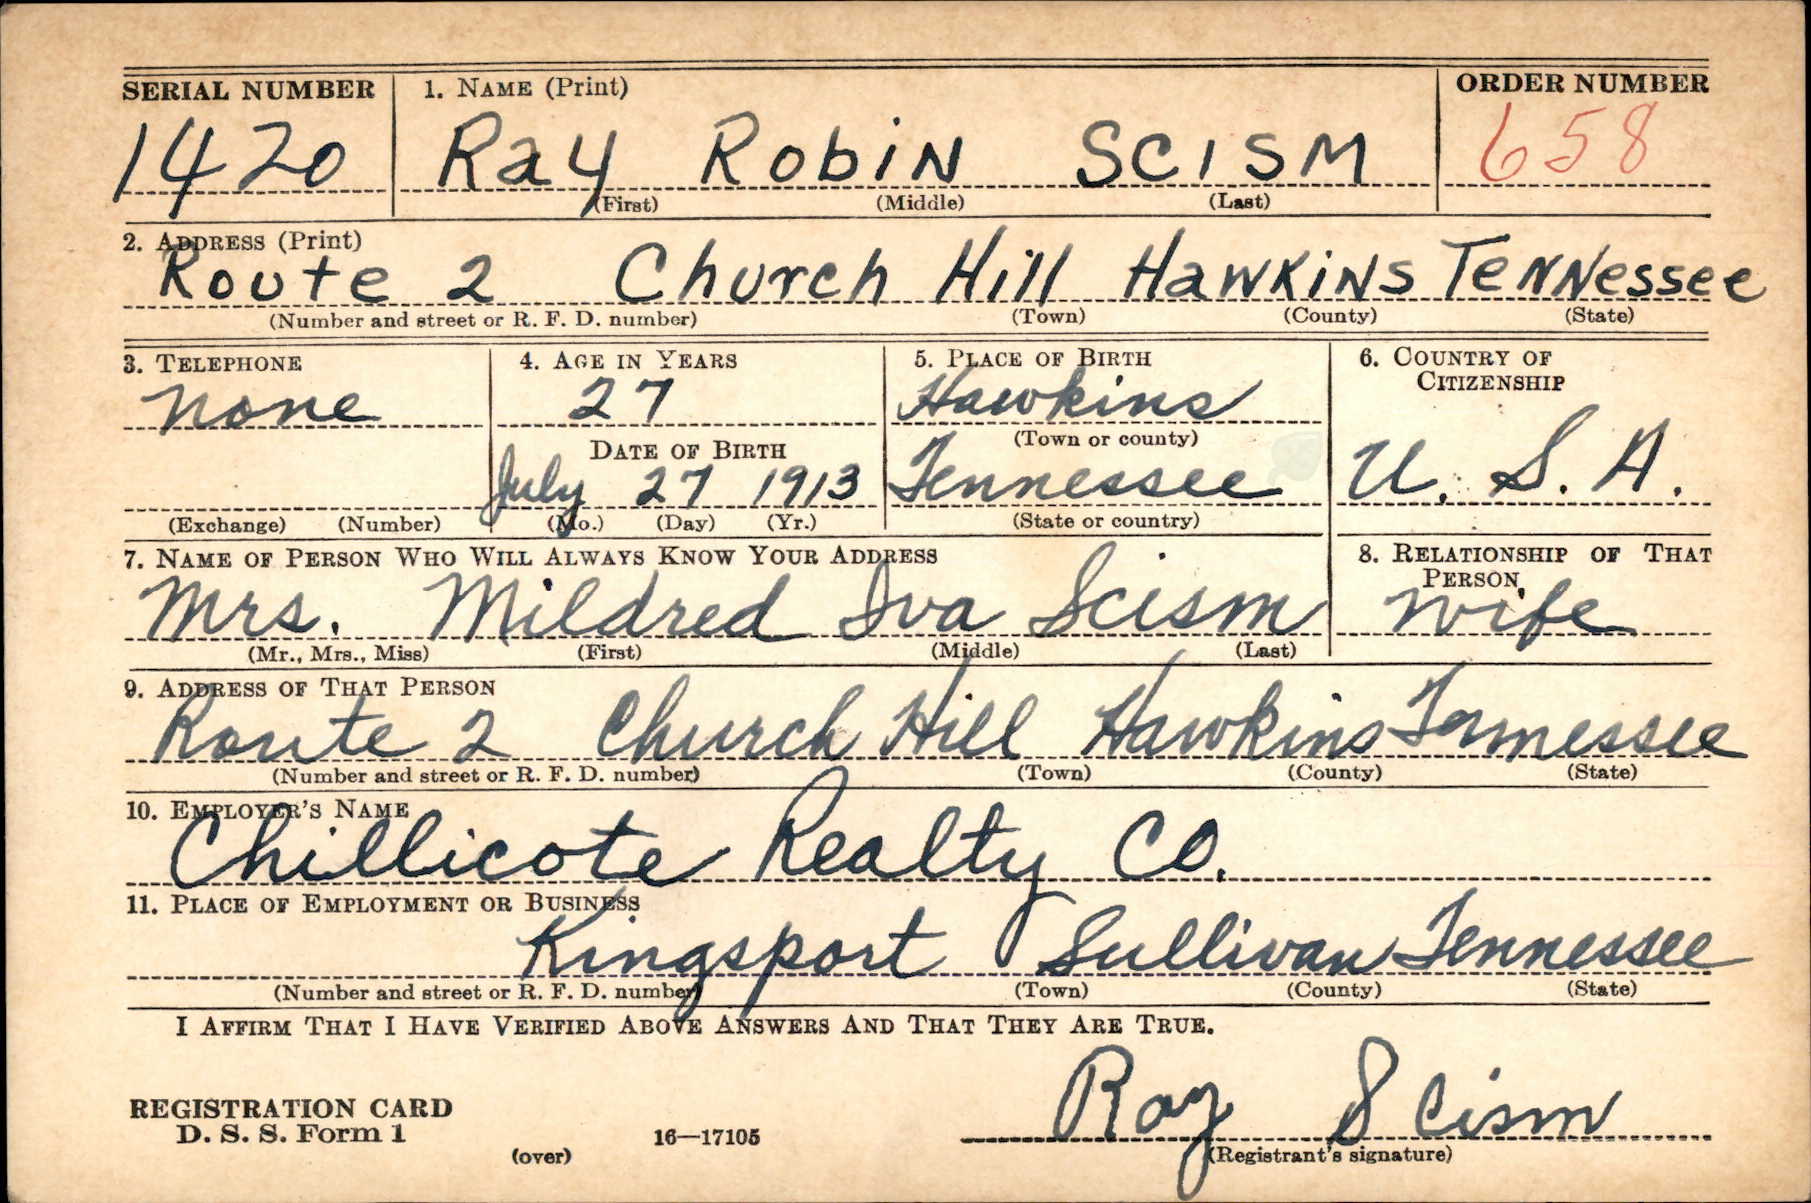 SERIAL NUMBER 1. NAME (Print) ORDER NUMBER
1420 Ray Robin SCISM 658
(First) (Middle) (Last)
2. ADDRESS (Print)
Route 2 Church Hill Hawkins Tennessee
(Number and street or R. F. D. number) (Town) (County) (State)
3. TELEPHONE 4. AGE IN YEARS 5. PLACE OF BIRTH 6. COUNTRY OF
CITIZENSHIP
None 27 Hawkins
DATE OF BIRTH (Town or county)
July 27 1913 Tennessee U. S. A.
(Exchange) (Number) (Mo.) (Day) (Yr.) (State or country)
7. NAME OF PERSON WHO WILL ALWAYS KNOW YOUR ADDRESS 8. RELATIONSHIP OF THAT
PERSON
Mrs. Mildred Iva Scism Wife
(Mr., Mrs., Miss) (First) (Middle) (Last)
9. ADDRESS OF THAT PERSON
Route 2 Church Hill Hawkins Tennessee
(Number and street or R. F. D. number) (Town) (County) (State)
10. EMPLOYER'S NAME
Chillicote Realty Co.
11. PLACE OF EMPLOYMENT OR BUSINESS
Kingsport Sullivan Tennessee
(Number and street or R. F. D. number) (Town) (County) (State)
I AFFIRM THAT I HAVE VERIFIED ABOVE ANSWERS AND THAT THEY ARE TRUE.
REGISTRATION CARD Ray Scism
D. S. S. Form 1 16—17105
(over) (Registrant's signature)